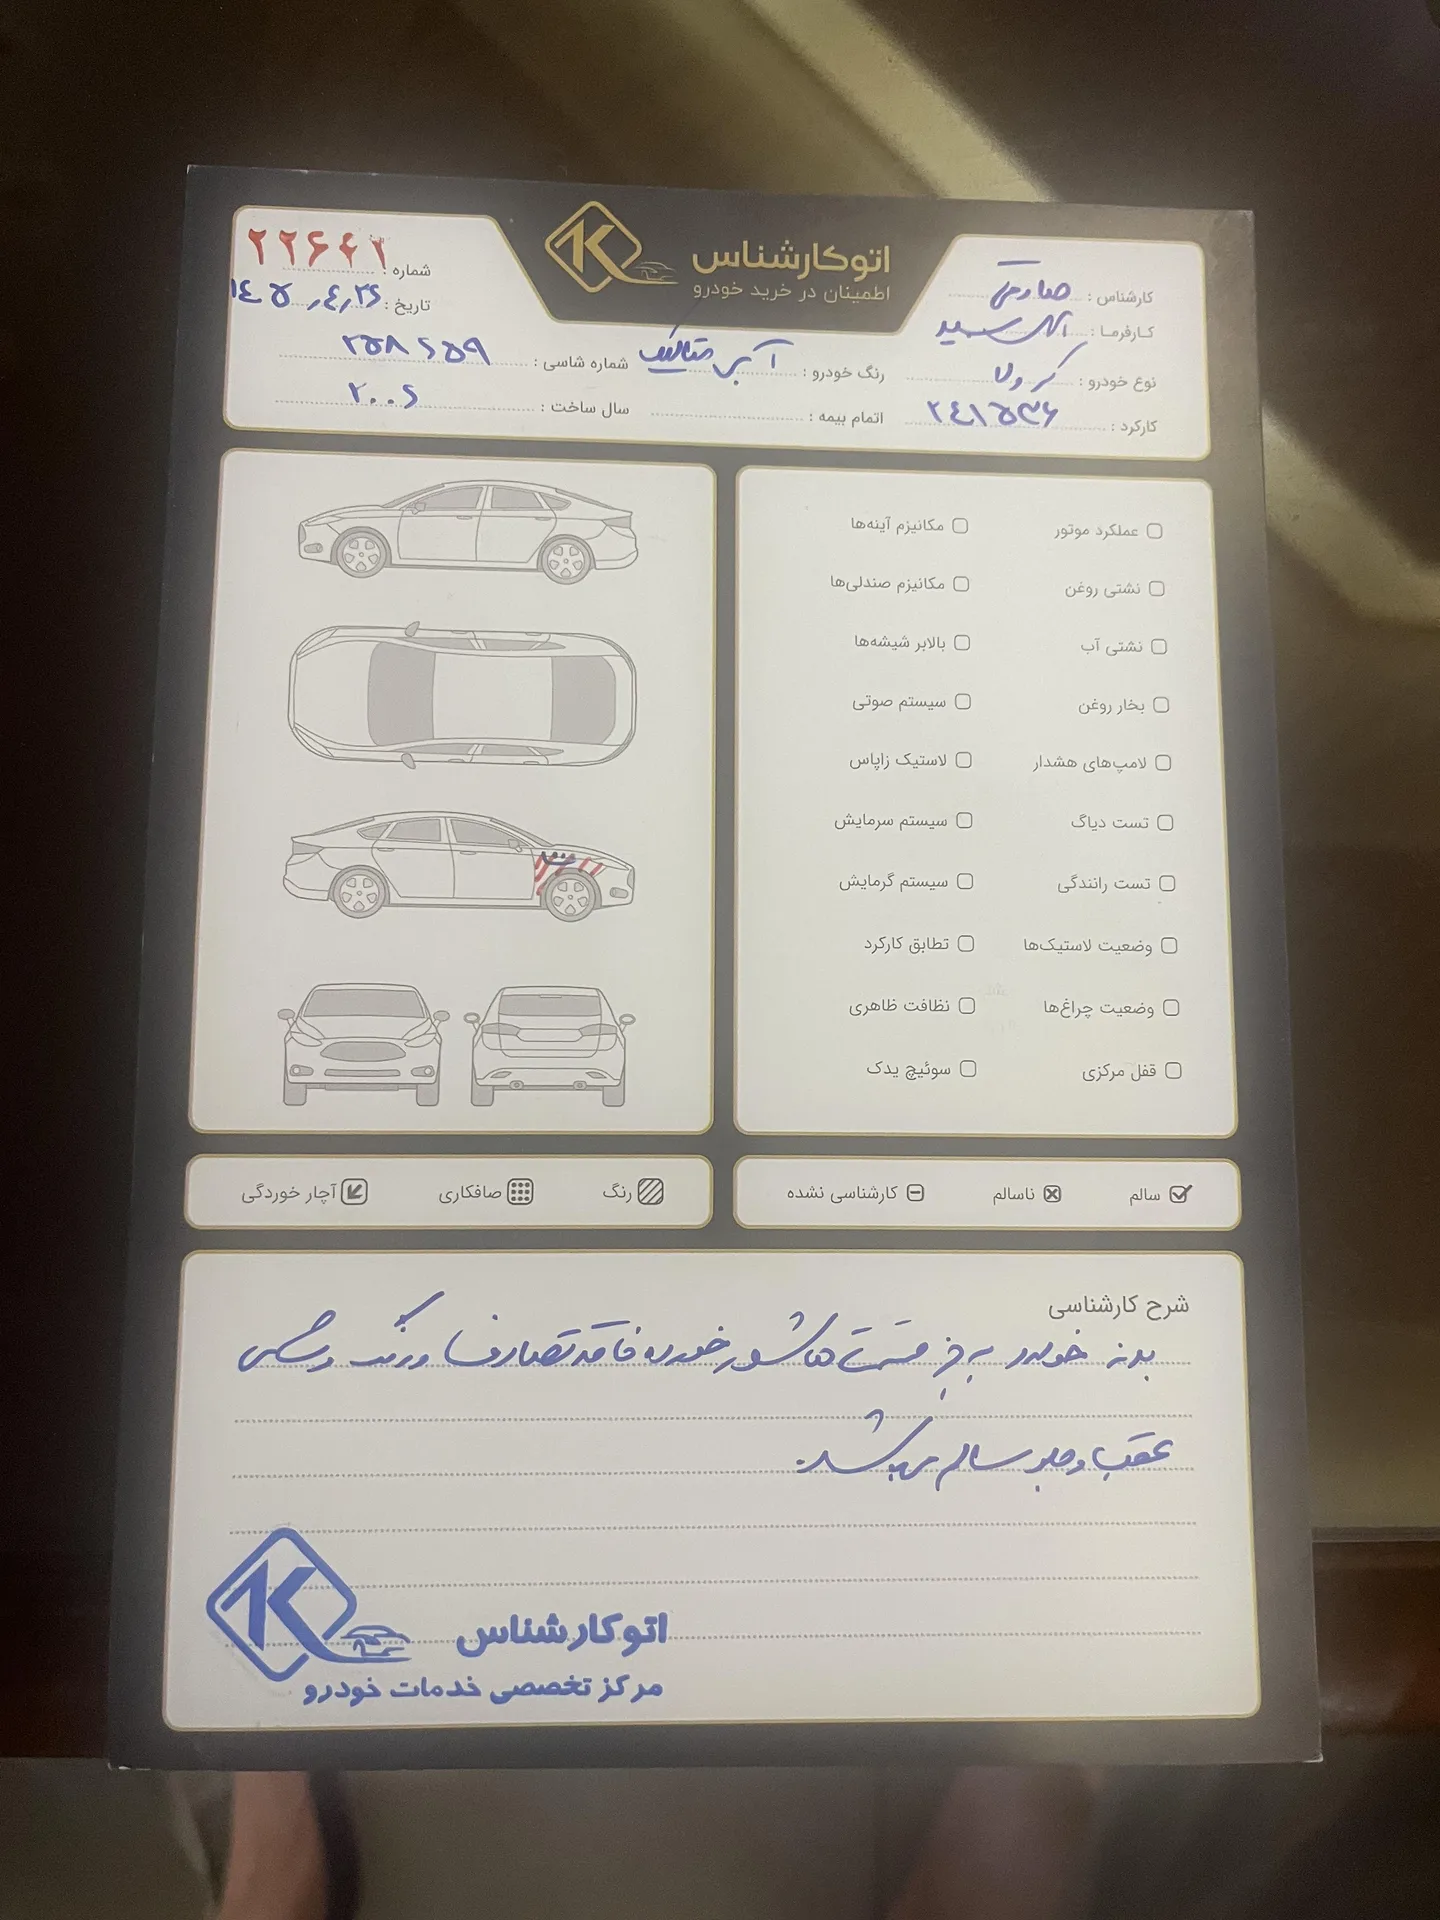 اتوکارشناس
اطمینان در خرید خودرو
کارشناس : صارمی
کارفرما :
نوع خودرو : کرولا
کارکرد : ۲۴۱۵۳۶
رنگ خودرو : آبی متالیک
اتمام بیمه :
شماره : ۲۲۶۶۲
تاریخ : ۱۴۰۵,۴,۲۶
شماره شاسی : ۲۵۸۶۵۹
سال ساخت : ۲۰۰۶
عملکرد موتور
مکانیزم آینه‌ها
نشتی روغن
مکانیزم صندلی‌ها
نشتی آب
بالابر شیشه‌ها
بخار روغن
سیستم صوتی
لامپ‌های هشدار
لاستیک زاپاس
تست دیاگ
سیستم سرمایش
تست رانندگی
سیستم گرمایش
وضعیت لاستیک‌ها
تطابق کارکرد
وضعیت چراغ‌ها
نظافت ظاهری
قفل مرکزی
سوئیچ یدک
سالم
ناسالم
کارشناسی نشده
رنگ
صافکاری
آچار خوردگی
شرح کارشناسی
بدنه خودرو به جز قسمت هاشور خورده فاقد تصادف و رنگ و شاسی
عقب و جلو سالم میباشد.
اتوکارشناس
مرکز تخصصی خدمات خودرو